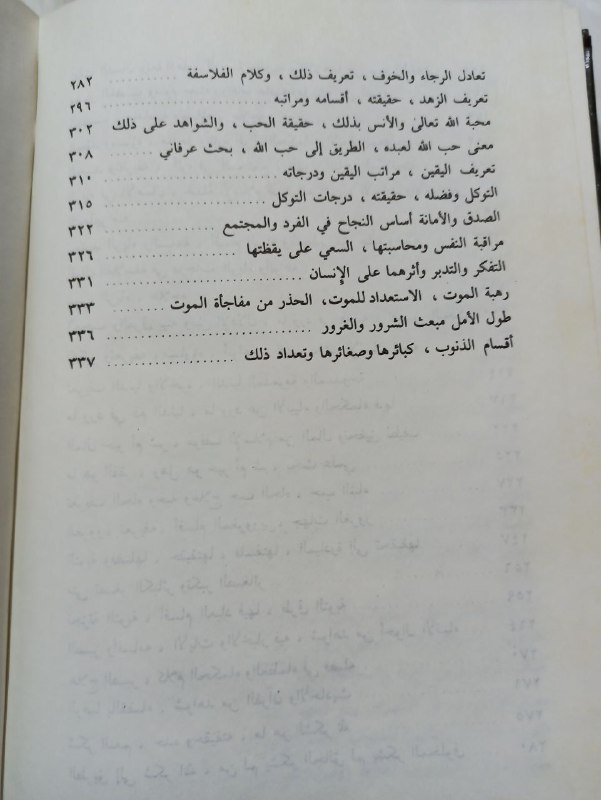 تعادل الرجاء والخوف ، تعريف ذلك ، وكلام الفلاسفة ........... ٢٨٢
تعريف الزهد ، حقيقته ، أقسامه ومراتبه ........... ٢٩٦
محبة الله تعالى والأنس بذلك ، حقيقة الحب ، والشواهد على ذلك ٣٠٢
معنى حب الله لعبده ، الطريق إلى حب الله ، بحث عرفاني ........ ٣٠٨
تعريف اليقين ، مراتب اليقين ودرجاته ........... ٣١٠
التوكل وفضله ، حقيقته ، درجات التوكل ........... ٣١٥
الصدق والأمانة أساس النجاح في الفرد والمجتمع ........... ٣٢٢
مراقبة النفس ومحاسبتها ، السعي على يقظتها ........... ٣٢٦
التفكر والتدبر وأثرهما على الإنسان ........... ٣٣١
رهبة الموت ، الاستعداد للموت، الحذر من مفاجأة الموت ........ ٣٣٣
طول الأمل مبعث الشرور والغرور ........... ٣٣٦
أقسام الذنوب ، كبائرها وصغائرها وتعداد ذلك ........... ٣٣٧